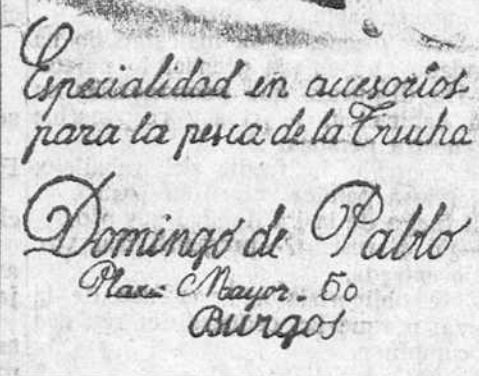 Especialidad en accesorios
para la pesca de la Trucha
Domingo de Pablo
Plaza Mayor - 50
Burgos